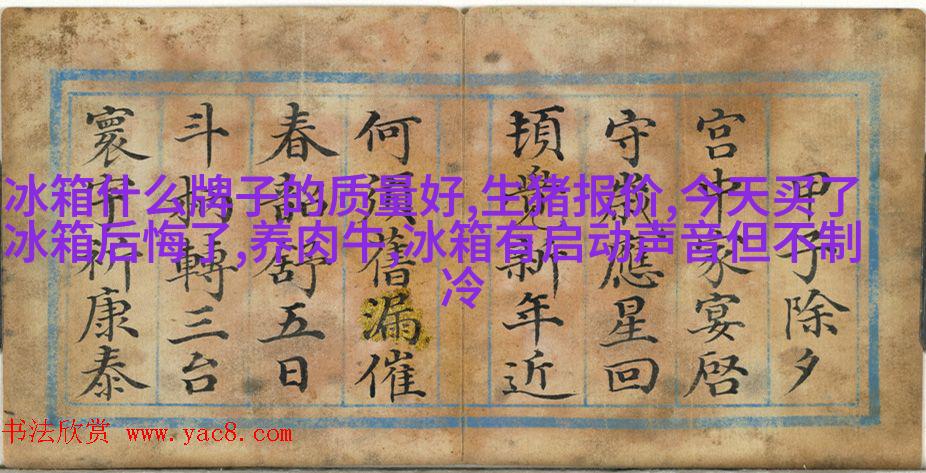 冰箱什么牌子的质量好,生猪报价,今天买了
冰箱后悔了,养肉牛,冰箱有启动声音但不制
冷
甲子除夕
宫中家宴啓
守歲應星回
頓覺新年近
何須舊漏催
春韶舒五日
斗杓轉三台
寰中祈康泰
书法欣赏 www.yac8.com